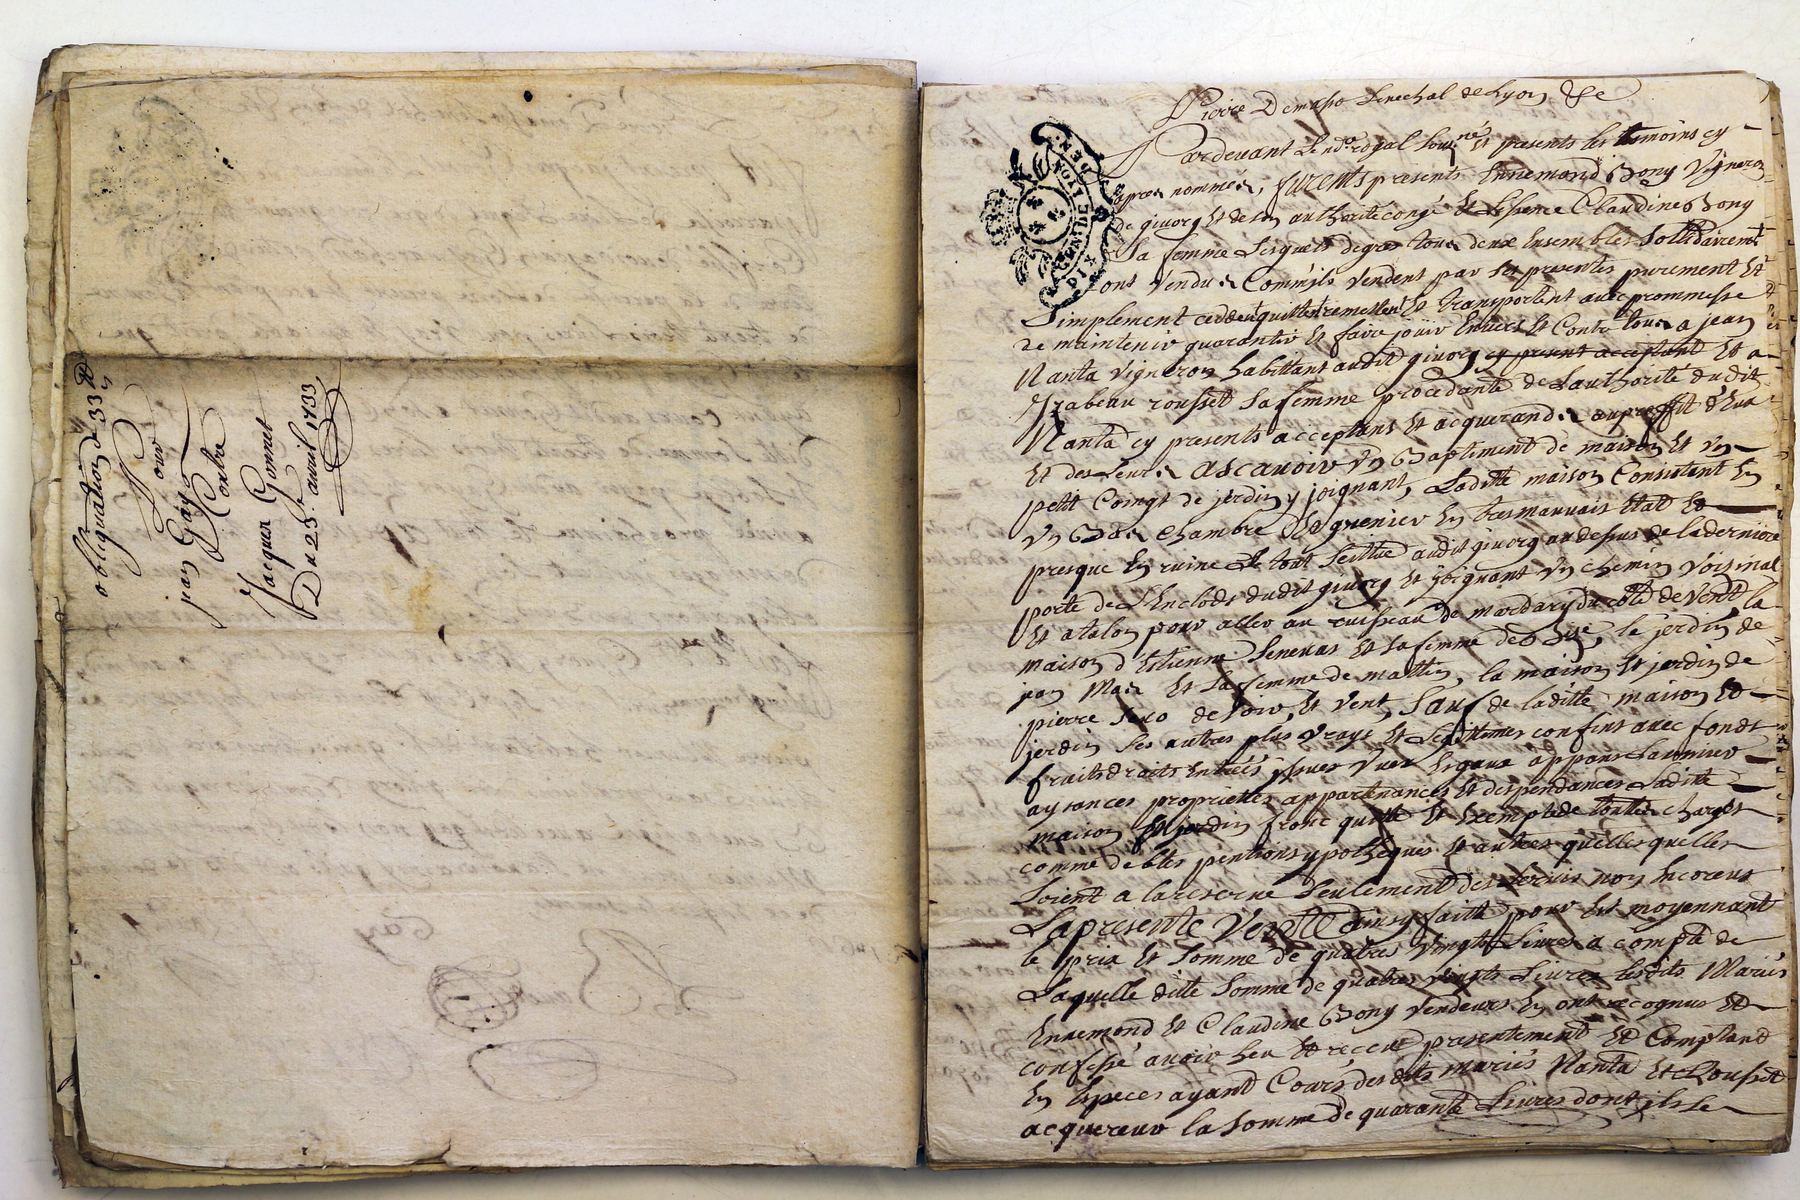 obligation de 33 ₶
Pour
jean Gay
Contre
Jacques Gonnet
Du 25.e avril 1733
Pierre Demaso Senechal de Lyon &c
GEN. DE LYON
DIX DEN.
Pardevant Le no.re royal sous.né Et presents les temoins cy
apres nommés, furents presents Ennemond Bony Vigneron
de givorg Et de son authorité congé Et Lissence Claudine Bony
Sa femme Lesquels de gré tous deux Ensembles Sollidairemt
ont vendus Comm'ils vendent par Ses presentes purement Et
Simplement cedden quittent remettent Et transportent avec prommesse
de maintenir guarantir Et faire jouir Envers Et Contre tous a jean
Nanta vigneron habittant audit givorg cy present acceptant Et a
Yzabeau rousset Sa femme procedante de Lauthorité dudit
Nanta cy presents acceptans Et acquerands au proffit d'Eux
Et des Leurs ascavoir un Baptiment de maison Et un
petit Coingt de jerdin y joignant, Laditte maison Consistent En
un Bas chambre Et grenier En tres mauvais Etat Et
presque En ruine Le tout Scittué audit givorg au dessus de la derniere
porte de L'Enclods dudit givorg Et joignant un chemin voisinal
Et atalon pour aller au ruisseau de mardary du cotté de vent, la
maison d'Estienne Senevas Et sa femme de Bise, le jerdin de
jean Mas Et sa femme de mattin, la maison Et jerdin de
pierre Seno de soir, Et vent, Sauf de laditte maison Et
jerdin Ses autres plus vrays Et Legittimes confins avec fonds
fruits droits Entrées yssues vues Esgaux appans Lavonier
aysances proprietés appartenances Et despendances Laditte
maison Et jerdin franc quitte Et Exempte de touttes charges
comme debtes pentions ypotheques Et autres quelles quelles
Soient a la reserve Seulement des servis non Encorus
La presente Vente ainsy faitte pour Et moyennant
le prix Et Somme de quatres vingts Livres a compte de
Laquelle ditte Somme de quatres vingts Livres Lesdits Mariés
Ennemond Et Claudine Bony vendeurs En ont recognus Et
confessé avoir heu Et receu presentement Et Comptand
En Especes ayant Cours desdits mariés Nanta Et Rousset
acquereur la Somme de quarante Livres dont ils Se